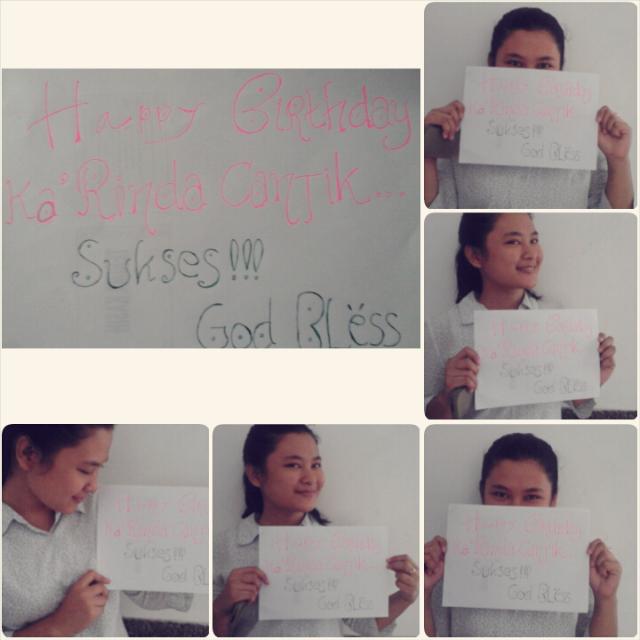 Happy Birthday
Ka' Rinda Cantik...
Sukses!!!
God BLëss
Happy Birthday
Ka' Rinda Cantik...
Sukses!!!
God BLëss
Happy Birthday
Ka' Rinda Cantik...
Sukses!!!
God BLëss
Happy
Ka' Rinda
Sukses!!!
God
Happy Birthday
Ka' Rinda Cantik...
Sukses!!!
God BLëss
Happy Birthday
Ka' Rinda Cantik...
Sukses!!!
God BLëss